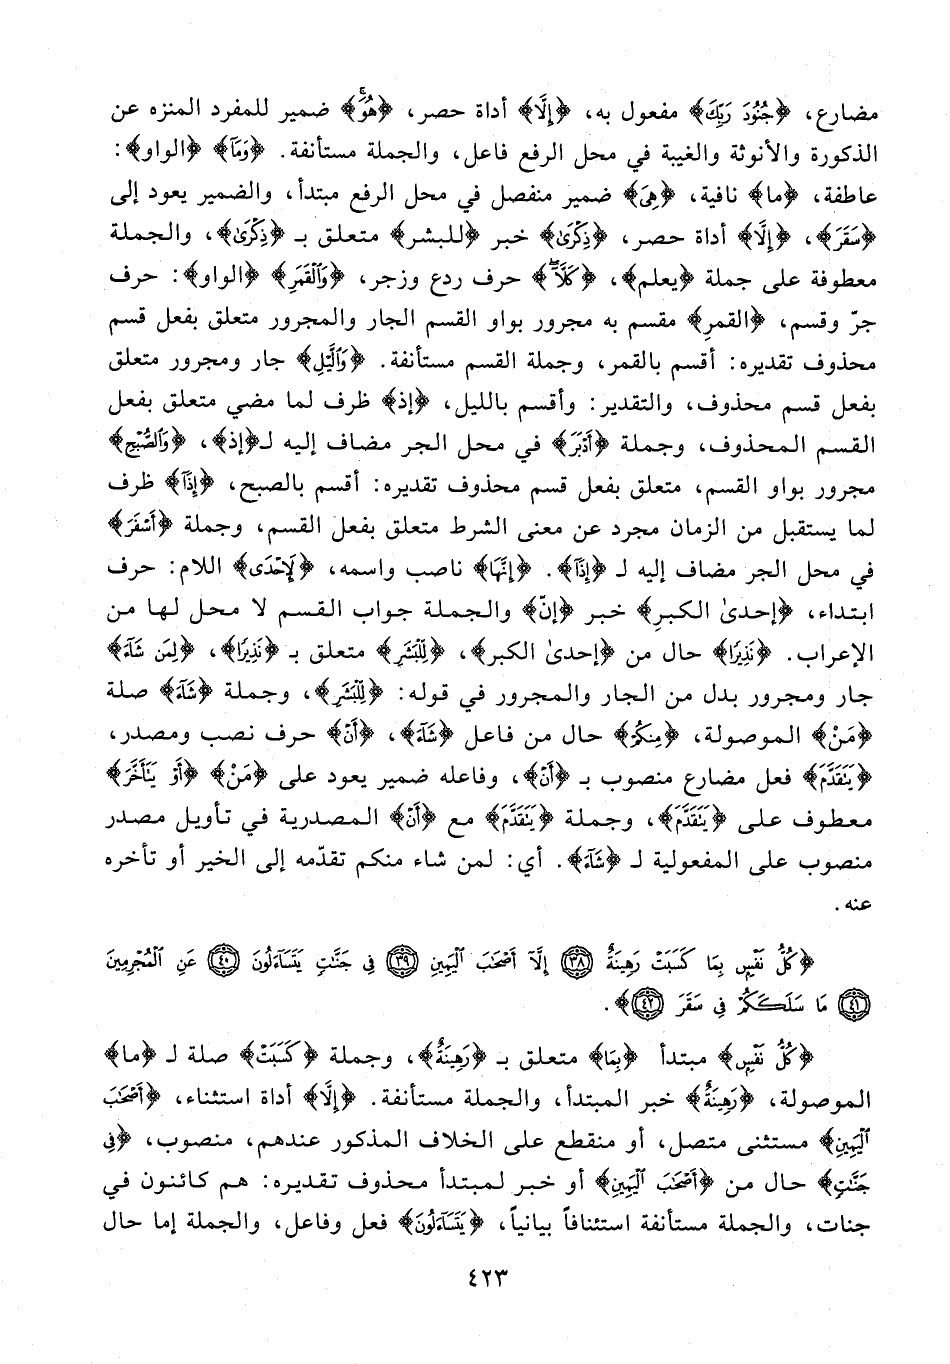 مضارع، ﴿جُنُودَ رَبِّكَ﴾ مفعول به، ﴿إِلَّا﴾ أداة حصر، ﴿هُوَۚ﴾ ضمير للمفرد المنزه عن
الذكورة والأنوثة والغيبة في محل الرفع فاعل، والجملة مستأنفة. ﴿وَمَا﴾ ﴿الواو﴾:
عاطفة، ﴿ما﴾ نافية، ﴿هِىَ﴾ ضمير منفصل في محل الرفع مبتدأ، والضمير يعود إلى
﴿سَقَرَ﴾، ﴿إِلَّا﴾ أداة حصر، ﴿ذِكْرَىٰ﴾ خبر ﴿للبشر﴾ متعلق بـ ﴿ذِكْرَىٰ﴾، والجملة
معطوفة على جملة ﴿يعلم﴾، ﴿كَلَّاۖ﴾ حرف ردع وزجر، ﴿وَٱلْقَمَرِ﴾ ﴿الواو﴾: حرف
جرّ وقسم، ﴿القمرِ﴾ مقسم به مجرور بواو القسم الجار والمجرور متعلق بفعل قسم
محذوف تقديره: أقسم بالقمر، وجملة القسم مستأنفة. ﴿وَٱلَّيْلِ﴾ جار ومجرور متعلق
بفعل قسم محذوف، والتقدير: وأقسم بالليل، ﴿إذ﴾ ظرف لما مضي متعلق بفعل
القسم المحذوف، وجملة ﴿أَدْبَرَ﴾ في محل الجر مضاف إليه لـ﴿إذ﴾، ﴿وَٱلصُّبْحِ﴾
مجرور بواو القسم، متعلق بفعل قسم محذوف تقديره: أقسم بالصبح، ﴿إِذَآ﴾ ظرف
لما يستقبل من الزمان مجرد عن معنى الشرط متعلق بفعل القسم، وجملة ﴿أَسْفَرَ﴾
في محل الجر مضاف إليه لـ ﴿إِذَآ﴾. ﴿إِنَّهَا﴾ ناصب واسمه، ﴿لَإِحْدَى﴾ اللام: حرف
ابتداء، ﴿إحدىٰ الكبرِ﴾ خبر ﴿إنّ﴾ والجملة جواب القسم لا محل لها من
الإعراب. ﴿نَذِيرًا﴾ حال من ﴿إحدىٰ الكبر﴾، ﴿لِّلْبَشَرِ﴾ متعلق بـ ﴿نَذِيرًا﴾، ﴿لِمَن شَآءَ﴾
جار ومجرور بدل من الجار والمجرور في قوله: ﴿لِّلْبَشَرِ﴾، وجملة ﴿شَآءَ﴾ صلة
﴿مَنْ﴾ الموصولة، ﴿مِنكُمْ﴾ حال من فاعل ﴿شَآءَ﴾، ﴿أَنْ﴾ حرف نصب ومصدر،
﴿يَتَقَدَّمَ﴾ فعل مضارع منصوب بـ ﴿أَنْ﴾، وفاعله ضمير يعود على ﴿مَنْ﴾ ﴿أَوْ يَتَأَخَّرَ﴾
معطوف على ﴿يَتَقَدَّمَ﴾، وجملة ﴿يَتَقَدَّمَ﴾ مع ﴿أَنْ﴾ المصدرية في تأويل مصدر
منصوب على المفعولية لـ ﴿شَآءَ﴾. أي: لمن شاء منكم تقدّمه إلى الخير أو تأخره
عنه.
﴿كُلُّ نَفْسٍۭ بِمَا كَسَبَتْ رَهِينَةٌ ٣٨ إِلَّآ أَصْحَٰبَ ٱلْيَمِينِ ٣٩ فِى جَنَّٰتٍ يَتَسَآءَلُونَ ٤٠ عَنِ ٱلْمُجْرِمِينَ
٤١ مَا سَلَكَكُمْ فِى سَقَرَ ٤٢﴾.
﴿كُلُّ نَفْسٍۭ﴾ مبتدأ ﴿بِمَا﴾ متعلق بـ ﴿رَهِينَةٌ﴾، وجملة ﴿كَسَبَتْ﴾ صلة لـ ﴿ما﴾
الموصولة، ﴿رَهِينَةٌ﴾ خبر المبتدأ، والجملة مستأنفة. ﴿إِلَّا﴾ أداة استثناء، ﴿أَصْحَٰبَ
ٱلْيَمِينِ﴾ مستثنى متصل، أو منقطع على الخلاف المذكور عندهم، منصوب، ﴿فِى
جَنَّٰتٍ﴾ حال من ﴿أَصْحَٰبَ ٱلْيَمِينِ﴾ أو خبر لمبتدأ محذوف تقديره: هم كائنون في
جنات، والجملة مستأنفة استئنافاً بيانياً، ﴿يَتَسَآءَلُونَ﴾ فعل وفاعل، والجملة إما حال
٤٢٣